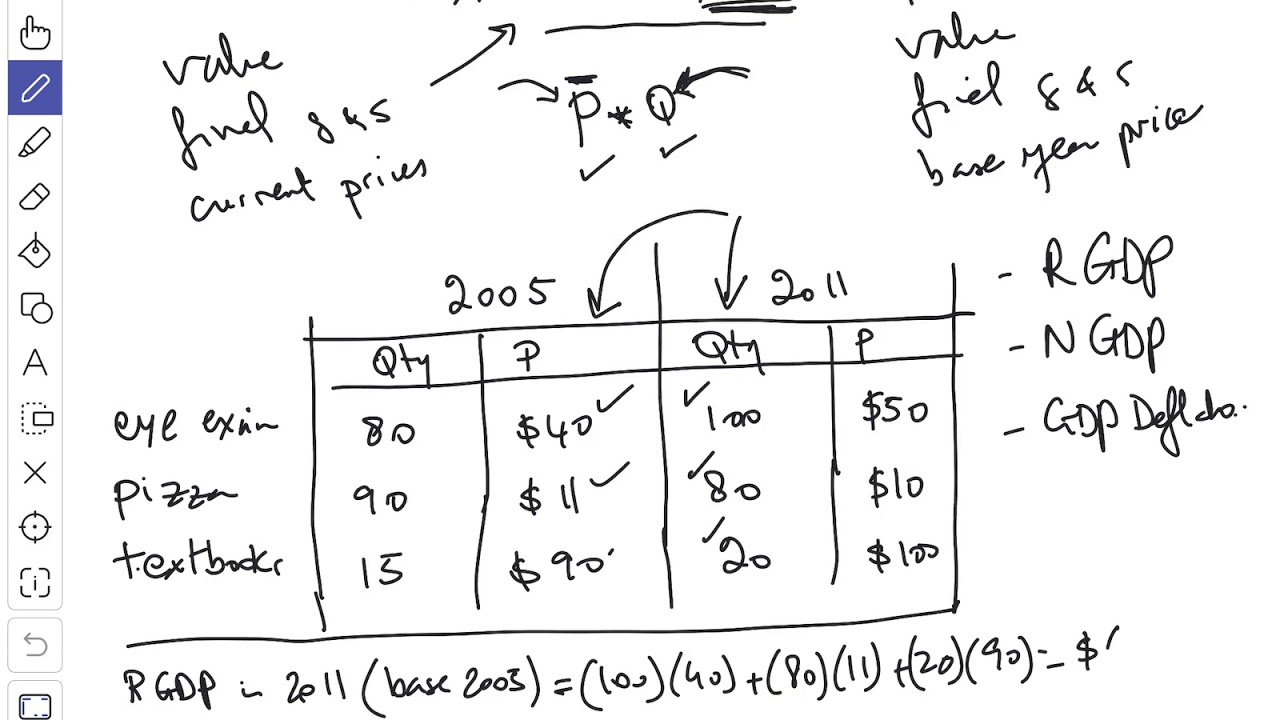 value
final g & s
current prices
P * Q
value
final g & s
base year price
2005 2011
Qty P Qty P
eye exam 80 $40 100 $50
pizza 90 $11 80 $10
textbooks 15 $90 20 $100
- RGDP
- NGDP
- GDP
RGDP in 2011 (base 2005) = (100)(40) + (80)(11) + (20)(90) = $
A